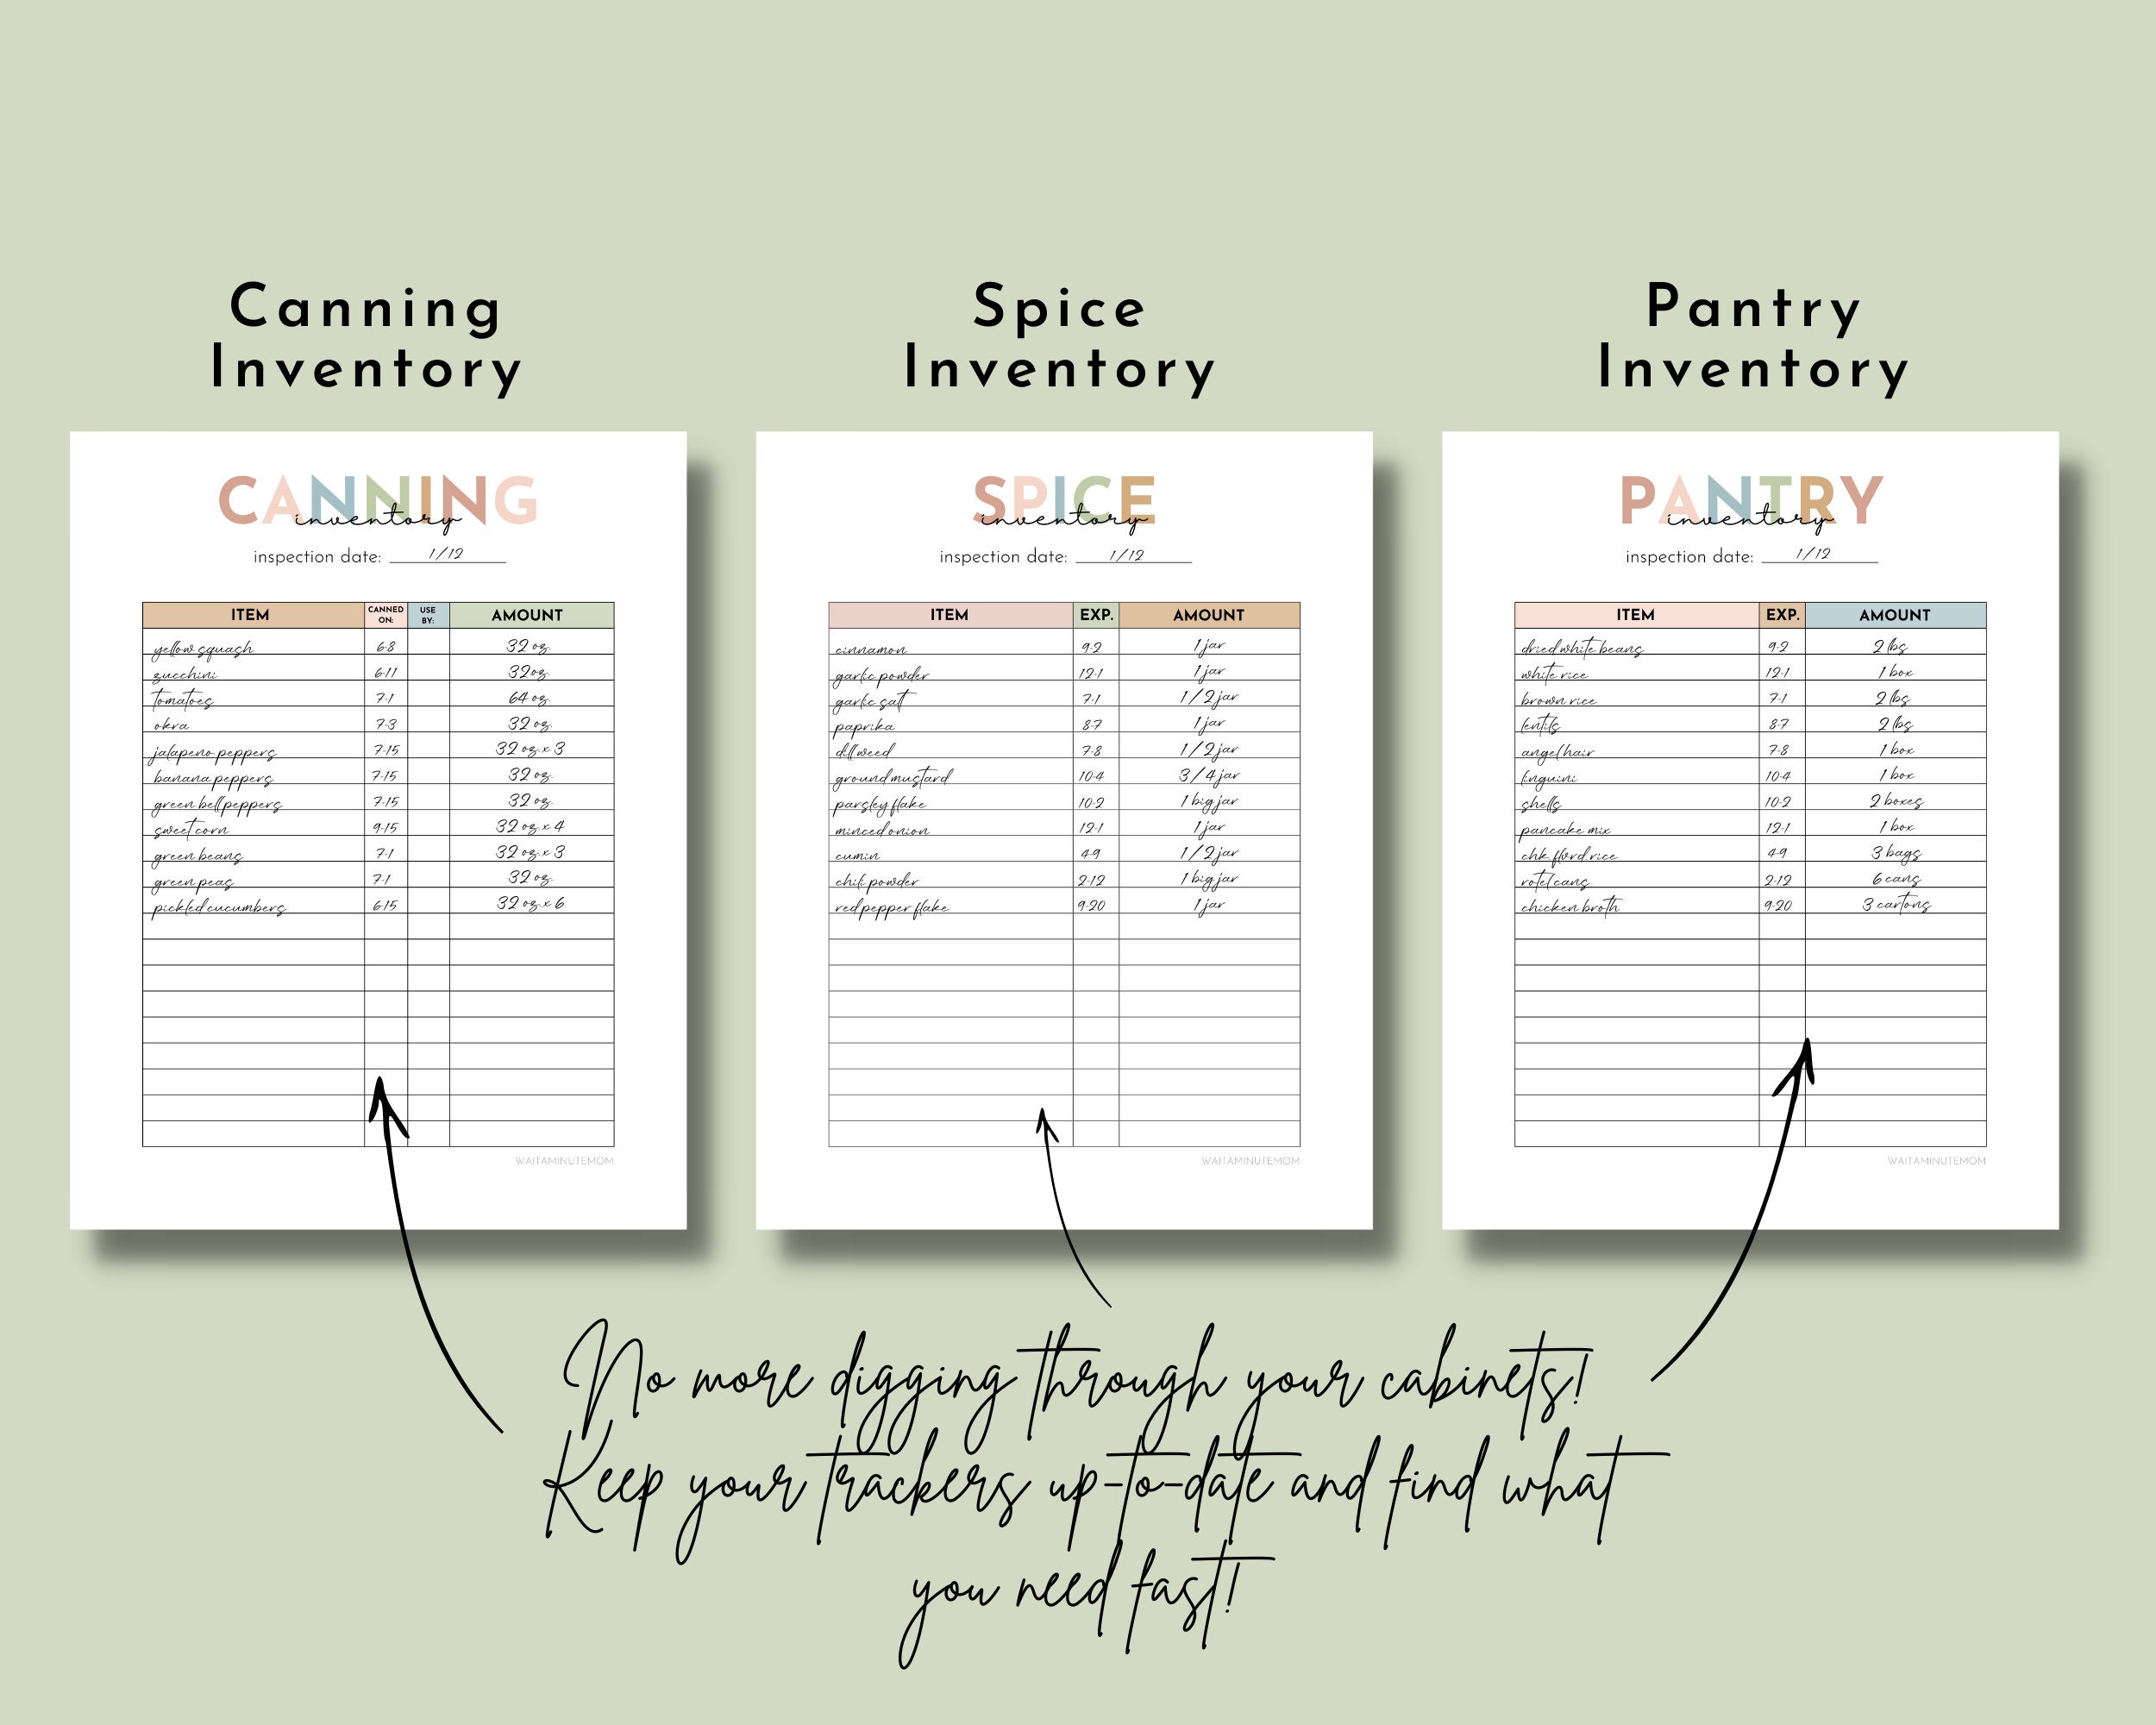 Canning
Inventory
CANNING
inventory
inspection date: 1/12
ITEM CANNED ON: USE BY: AMOUNT
yellow squash 6-8 32 oz.
zucchini 6-11 32 oz.
tomatoes 7-1 64 oz.
okra 7-3 32 oz.
jalapeno peppers 7-15 32 oz. x 3
banana peppers 7-15 32 oz.
green bell peppers 7-15 32 oz.
sweet corn 9-15 32 oz. x 4
green beans 7-1 32 oz. x 3
green peas 7-1 32 oz.
pickled cucumbers 6-15 32 oz. x 6
WAITAMINUTEMOM
Spice
Inventory
SPICE
inventory
inspection date: 1/12
ITEM EXP. AMOUNT
cinnamon 9-2 1 jar
garlic powder 12-1 1 jar
garlic salt 7-1 1/2 jar
paprika 8-7 1 jar
dill weed 7-8 1/2 jar
ground mustard 10-4 3/4 jar
parsley flake 10-2 1 big jar
minced onion 12-1 1 jar
cumin 4-9 1/2 jar
chili powder 2-12 1 big jar
red pepper flake 9-20 1 jar
WAITAMINUTEMOM
Pantry
Inventory
PANTRY
inventory
inspection date: 1/12
ITEM EXP. AMOUNT
dried white beans 9-2 2 lbs
white rice 12-1 1 box
brown rice 7-1 2 lbs
lentils 8-7 2 lbs
angel hair 7-8 1 box
linguini 10-4 1 box
shells 10-2 2 boxes
pancake mix 12-1 1 box
chk. flvrd rice 4-9 3 bags
rotel cans 2-12 6 cans
chicken broth 9-20 3 cartons
WAITAMINUTEMOM
No more digging through your cabinets!
Keep your trackers up-to-date and find what
you need fast!